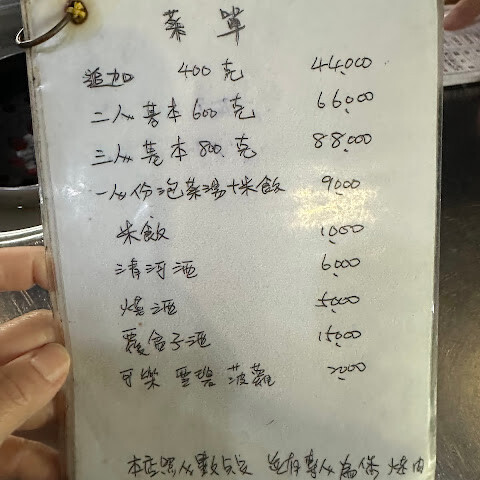 菜單
追加 400克 44,000
二人基本600克 66,000
三人基本800克 88,000
一人份泡菜湯+米飯 9,000
米飯 1,000
清河酒 6,000
燒酒 5,000
覆盆子酒 15,000
可樂 雪碧 菠蘿 2,000
本店照人數点点 還有專人為你 烤肉